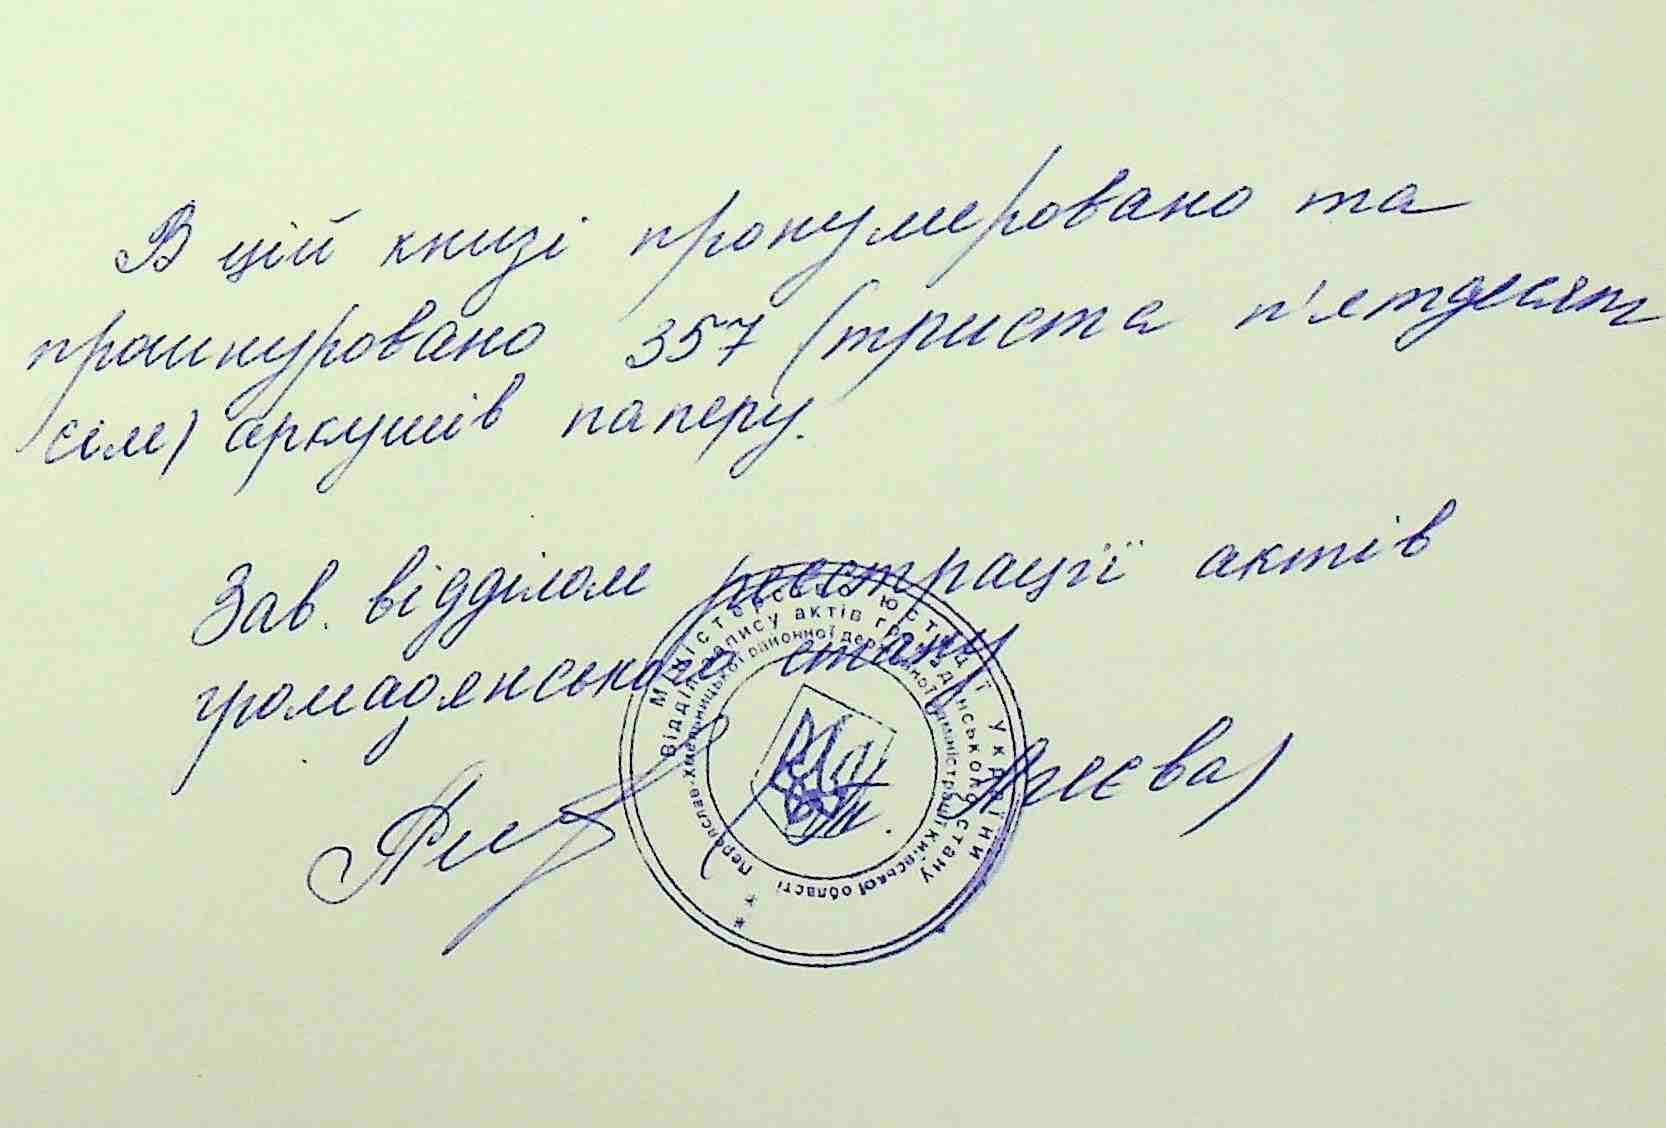 В цій книзі пронумеровано та
прошнуровано 357 (триста п'ятдесят
сім) аркушів паперу.
Зав. відділом реєстрації актів
громадянського стану
Міністерство юстиції України
Відділ запису актів громадянського стану
Переяслав-Хмельницької районної державної адміністрації Київської області